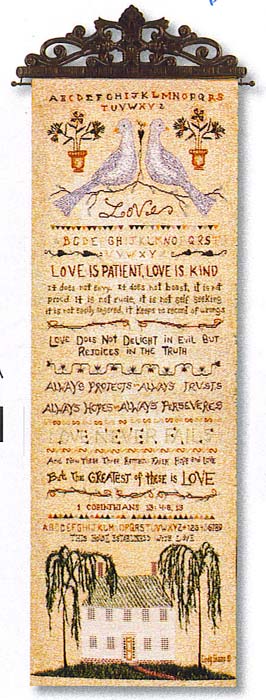 ABCDEFGHIJKLMNOPQRS
TUVWXYZ
Love
ABCDEFGHIJKLMNOPQRST
UVWXYZ
LOVE IS PATIENT, LOVE IS KIND
It does not envy. It does not boast, it is not
proud. It is not rude, it is not self seeking
it is not easily angered, it keeps no record of wrongs
LOVE DOES NOT DELIGHT IN EVIL BUT
REJOICES IN THE TRUTH
ALWAYS PROTECTS-ALWAYS TRUSTS
ALWAYS HOPES-ALWAYS PERSEVERES
LOVE NEVER FAILS
And now these Three Remain: Faith, Hope and Love
But the GREATEST of these is LOVE
1 CORINTHIANS 13:4-8, 13
ABCDEFGHIJKLMNOPQRSTUVWXYZ
THIS HOUSE ESTABLISHED WITH LOVE